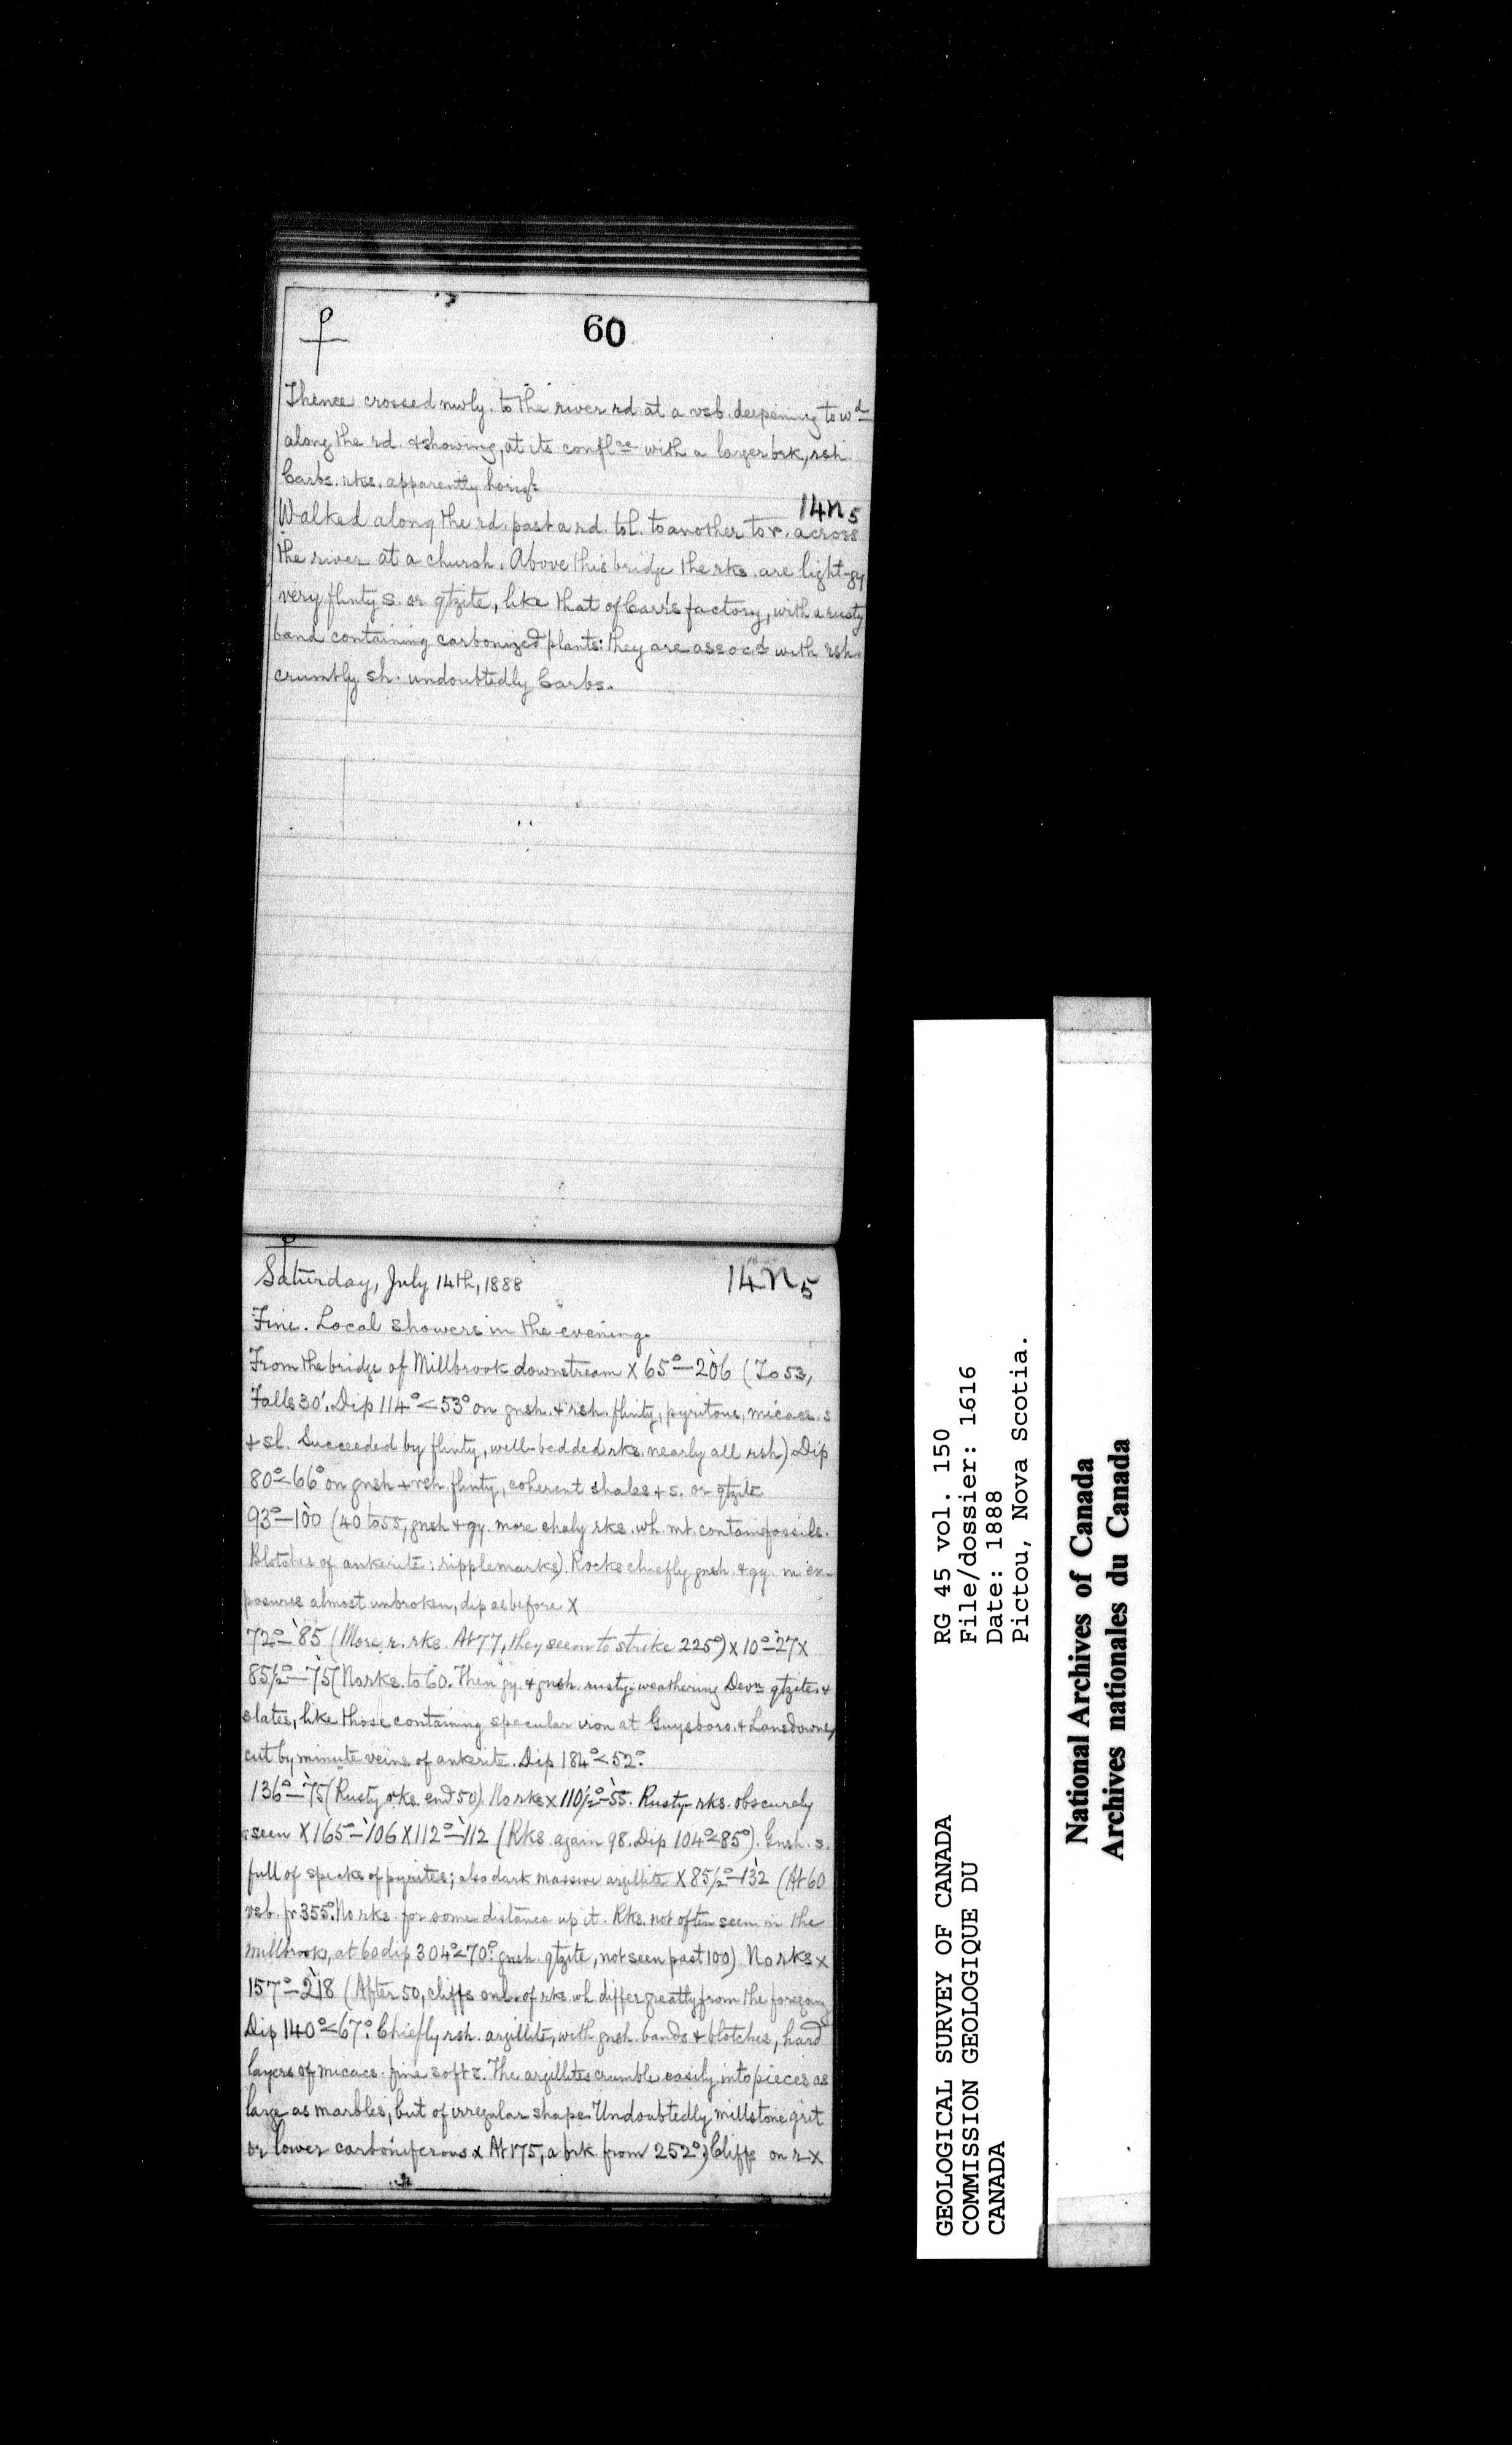 60
Thence crossed nwly. to the river rd. at a vsb. deepening tow^d
along the rd. & showing, at its confl^ce with a larger brk, rsh.
Carbs. rks. apparently horiz^l.
14n5
Walked along the rd. past a rd. to l. to another to r. across
the river at a church. Above this bridge the rks. are light-gy
very flinty s. or qtzite, like that of Carr's factory, with a rusty
band containing carbonized plants: they are assoc^d with rsh.
crumbly sh. undoubtedly Carbs.
Saturday, July 14th, 1888
14n5
Fine. Local showers in the evening.
From the bridge of Millbrook downstream x 65°-206 (To 53,
Falls 30'. Dip 114°<53° on gnsh. & rsh. flinty, pyritous, micacs. s
& sl. Succeeded by flinty, well-bedded rks. nearly all rsh) Dip
80°<66° on gnsh & rsh. flinty, coherent shales & s. or qtzite
93°-100 (40 to 55, gnsh & gy. more shaly rks. wh. mt. contain fossils.
Blotches of ankerite: ripplemarks). Rocks chiefly gnsh. & gy. in ex-
posures almost unbroken, dip as before x
72°-85 (More r. rks. At 77, they seem to strike 225°) x 10°-27 x
85½°-75 (No rks. to 60. Then gy. & gnsh. rusty-weathering Dev^n qtzites &
slates, like those containing specular iron at Guysboro. & Lansdowne,
cut by minute veins of ankerite. Dip 184°<52°.
136°-75 (Rusty rks. end 50). No rks x 110½°-55. Rusty rks. obscurely
seen x 165°-106 x 112°-112 (Rks. again 98. Dip 104°<85°). Gnsh. s.
full of specks of pyrites; also dark massive argillite x 85½°-132 (At 60
vsb. fr 355°. No rks. for some distance up it. Rks. not often seen in the
Millbrook, at 60 dip 304°<70°. gnsh. qtzite, not seen past 100) No rks x
157°-218 (After 50, cliffs on l. of rks. wh differ greatly from the foregoing
Dip 140°<67°. Chiefly rsh. argillite, with gnsh. bands & blotches, hard
layers of micacs. fine soft s. The argillites crumble easily into pieces as
large as marbles, but of irregular shape. Undoubtedly millstone grit
or lower carboniferous x At 175, a brk. from 252°) Cliffs on r x
GEOLOGICAL SURVEY OF CANADA
COMMISSION GEOLOGIQUE DU
CANADA
RG 45 vol. 150
File/dossier: 1616
Date: 1888
Pictou, Nova Scotia.
National Archives of Canada
Archives nationales du Canada